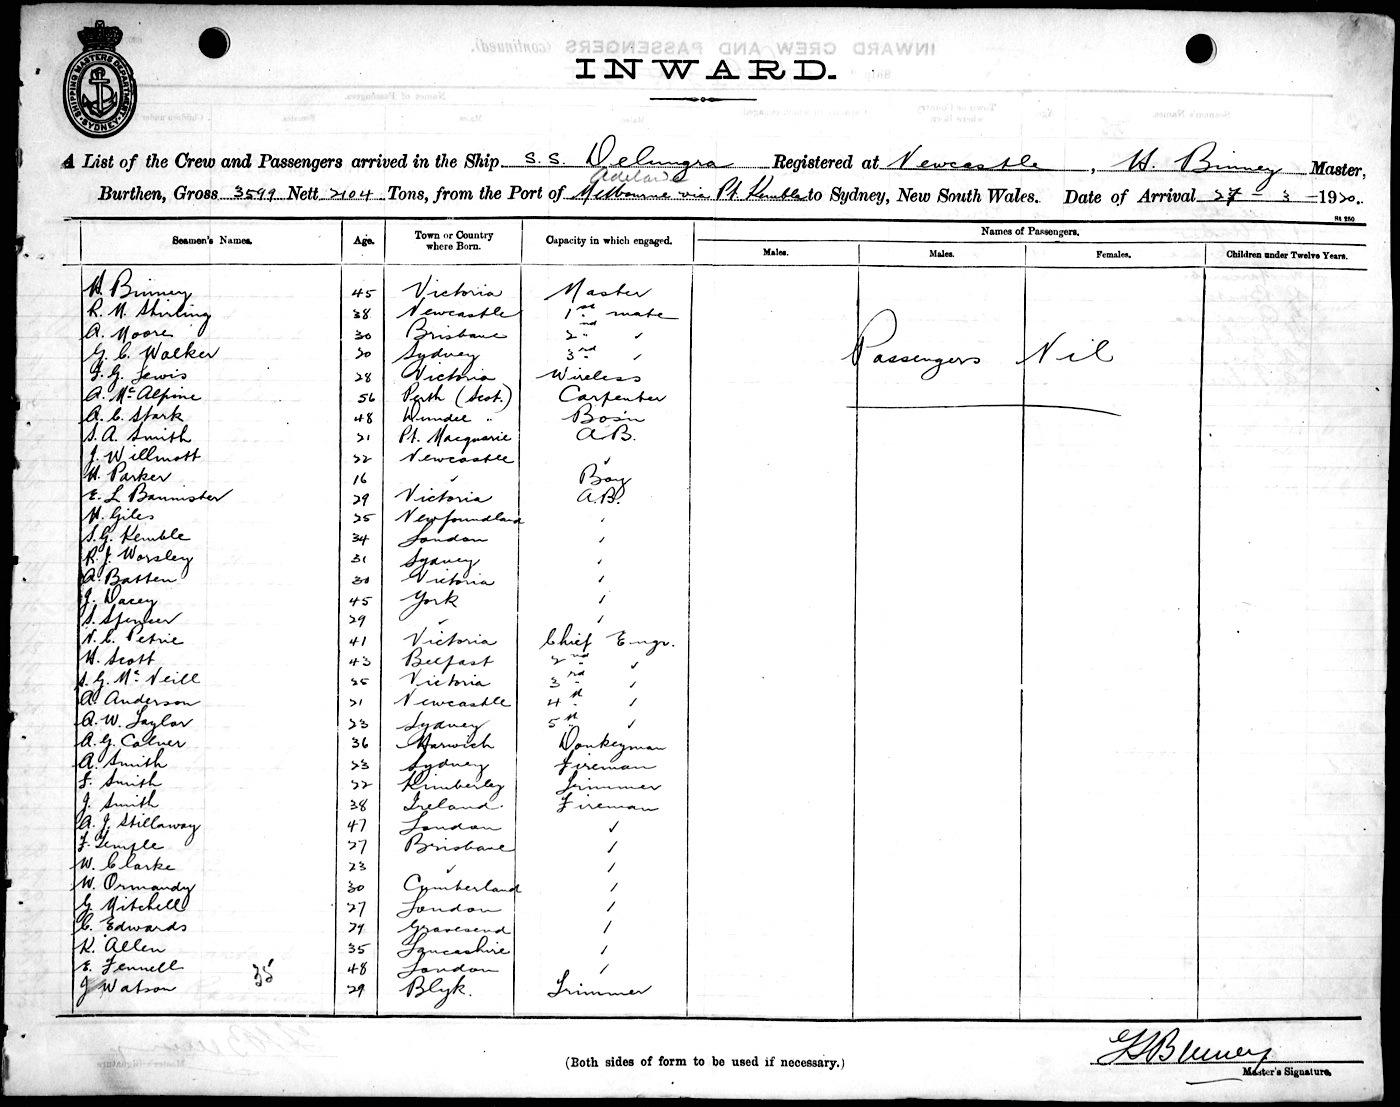 SHIPPING MASTERS DEPARTMENT SYDNEY
INWARD.
A List of the Crew and Passengers arrived in the Ship S.S. Delungra Registered at Newcastle, H. Binney Master,
Adelaide
Burthen, Gross 3599 Nett 2104 Tons, from the Port of Melbourne via Pt. Kembla to Sydney, New South Wales. Date of Arrival 27 - 3 - 1920.
Seamen's Names. Age. Town or Country where Born. Capacity in which engaged. Names of Passengers.
Males. Males. Females. Children under Twelve Years.
H. Binney 45 Victoria Master
R. M. Stirling 38 Newcastle 1st mate
A. Moore 30 Brisbane 2nd "
G. C. Walker 20 Sydney 3rd "
Passengers Nil
F. G. Lewis 28 Victoria Wireless
A. McAlpine 56 Perth (Scot.) Carpenter
A. C. Stark 48 Dundee " Bos'n
S. A. Smith 21 Pt. Macquarie A.B.
J. Willmott 22 Newcastle "
H. Parker 16 " Boy
E. L. Bannister 29 Victoria A.B.
H. Giles 25 Newfoundland "
S. G. Kemble 34 London "
R. J. Worsley 31 Sydney "
A. Batten 30 Victoria "
J. Dacey 45 York "
S. Spencer 29 " "
N. C. Petrie 41 Victoria Chief Engr.
H. Scott 43 Belfast 2nd "
S. G. McNeill 25 Victoria 3rd "
A. Anderson 21 Newcastle 4th "
A. W. Taylor 23 Sydney 5th "
A. G. Calver 36 Harwich Donkeyman
A. Smith 23 Sydney Fireman
F. Smith 22 Kimberley Trimmer
J. Smith 38 Ireland. Fireman
A. J. Stillaway 47 London "
F. Temple 27 Brisbane "
W. Clarke 23 " "
W. Ormandy 30 Cumberland "
G. Mitchell 27 London "
C. Edwards 29 Gravesend "
R. Allen 35 Lancashire "
E. Fennell 48 London "
35
J Watson 29 Blyk. Trimmer
H Binney
(Both sides of form to be used if necessary.)
Master's Signature.